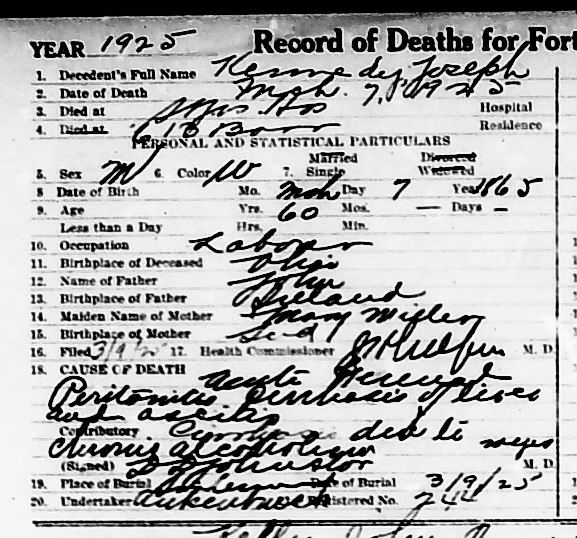 YEAR 1925 Record of Deaths for Fort
1. Decedent's Full Name Kennedy Joseph
2. Date of Death Mch. 7, 1925
3. Died at Hos Hospital
4. Died at Residence
PERSONAL AND STATISTICAL PARTICULARS
Married Divorced
5. Sex M 6. Color W 7. Single Widowed
8 Date of Birth Mo. Mch Day 7 Year 1865
9. Age Yrs. 60 Mos. — Days —
Less than a Day Hrs. Min.
10. Occupation Labor
11. Birthplace of Deceased Ohio
12. Name of Father John
13. Birthplace of Father Ireland
14. Maiden Name of Mother Mary Miller
15. Birthplace of Mother
16. Filed 3/9/25 17. Health Commissioner M. D.
18. CAUSE OF DEATH Acute General
Peritonitis Cirrhosis of liver
and ascitis
Contributory due to
chronic alcoholism
(Signed) Johnston M. D.
19. Place of Burial Date of Burial 3/9/25
20. Undertaker Registered No. 244